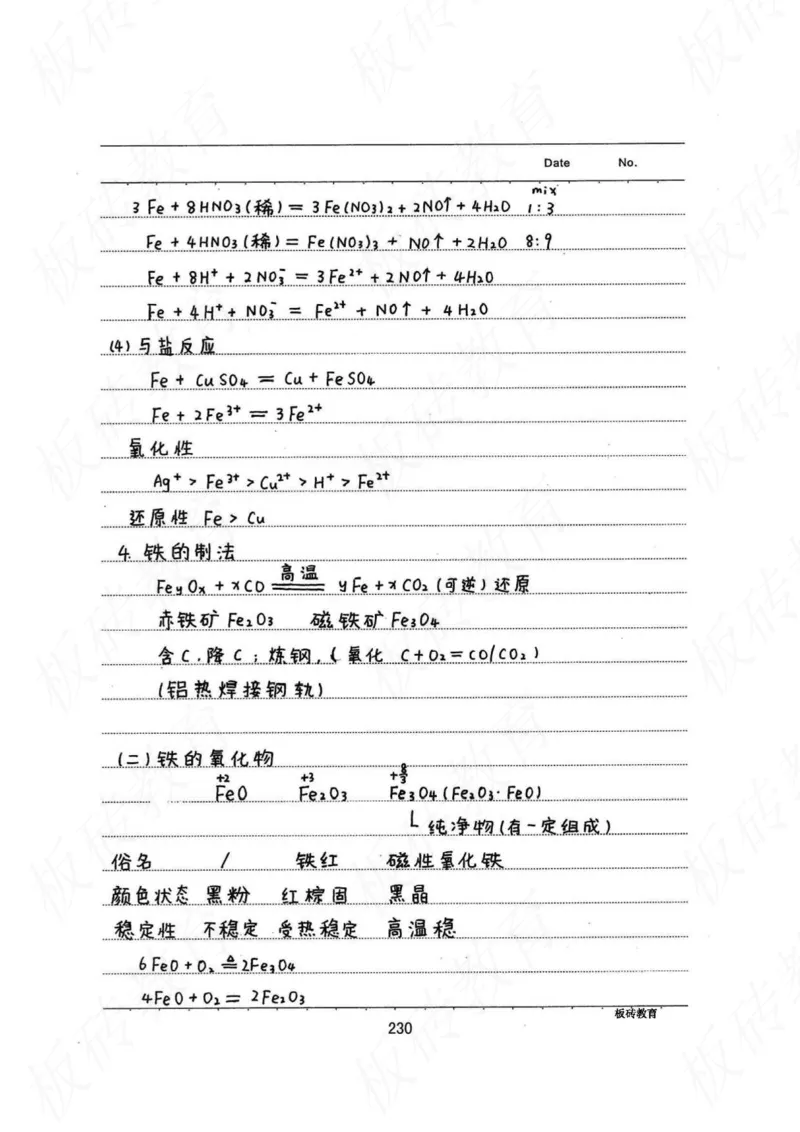 Date No.
mix
3Fe + 8HNO₃(稀) = 3Fe(NO₃)₂ + 2NO↑ + 4H₂O 1:3
Fe + 4HNO₃(稀) = Fe(NO₃)₃ + NO↑ + 2H₂O 8:9
Fe + 8H⁺ + 2NO₃⁻ = 3Fe²⁺ + 2NO↑ + 4H₂O
Fe + 4H⁺ + NO₃⁻ = Fe²⁺ + NO↑ + 4H₂O
(4)与盐反应
Fe + CuSO₄ = Cu + FeSO₄
Fe + 2Fe³⁺ = 3Fe²⁺
氧化性
Ag⁺ > Fe³⁺ > Cu²⁺ > H⁺ > Fe²⁺
还原性 Fe > Cu
4. 铁的制法
FeyOx + xCO =高温= yFe + xCO₂ (可逆)还原
赤铁矿 Fe₂O₃ 磁铁矿 Fe₃O₄
含C,降C;炼钢,(氧化 C+O₂=CO/CO₂)
(铝热焊接钢轨)
(二)铁的氧化物
+2 +3 +8/3
FeO Fe₂O₃ Fe₃O₄(Fe₂O₃·FeO)
└ 纯净物(有一定组成)
俗名 / 铁红 磁性氧化铁
颜色状态 黑粉 红棕固 黑晶
稳定性 不稳定 受热稳定 高温稳
6FeO + O₂ ≜ 2Fe₃O₄
4FeO + O₂ = 2Fe₂O₃
板砖教育
230